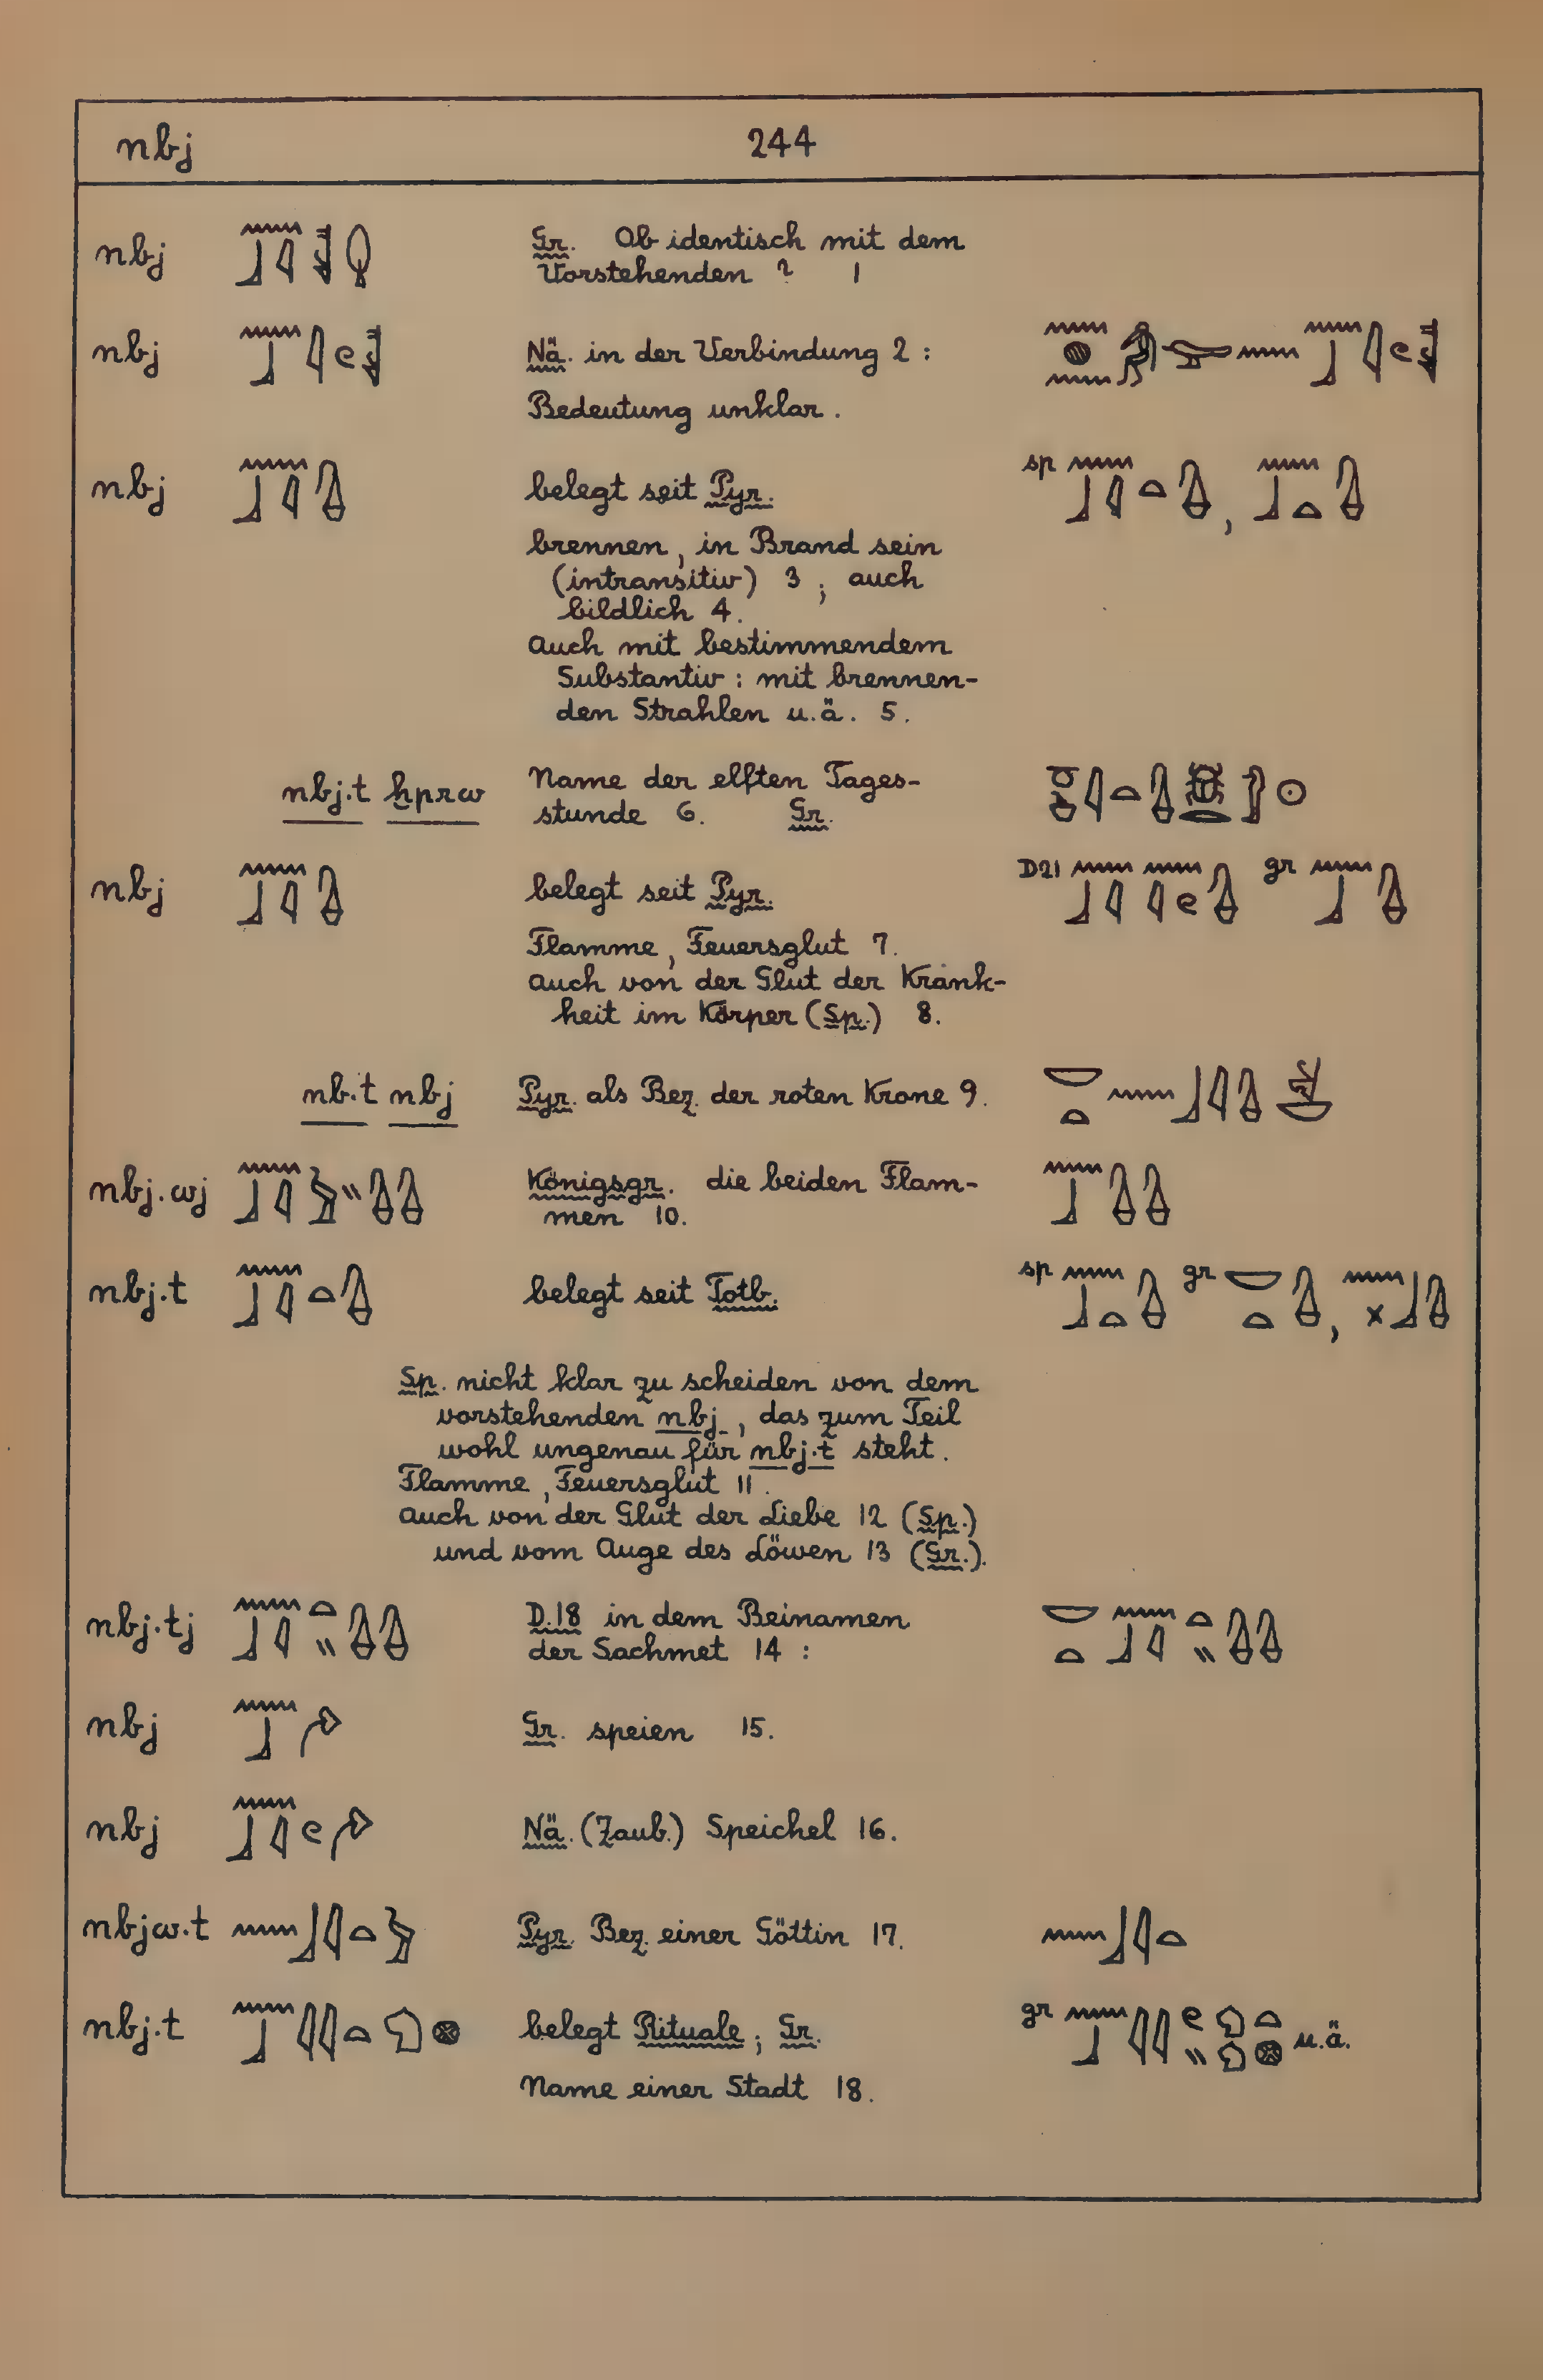 nbj 244
nbj Gr. Ob identisch mit dem
Vorstehenden ? 1
nbj Nä. in der Verbindung 2 :
Bedeutung unklar.
nbj belegt seit Pyr. sp ,
brennen, in Brand sein
(intransitiv) 3 ; auch
bildlich 4.
auch mit bestimmendem
Substantiv : mit brennen-
den Strahlen u.ä. 5.
nbj.t ḫprw Name der elften Tages-
stunde 6. Gr.
nbj belegt seit Pyr. D21 gr
Flamme, Feuersglut 7.
auch von der Glut der Krank-
heit im Körper (Sp.) 8.
nb.t nbj Pyr. als Bez. der roten Krone 9.
nbj.wj Königsgr. die beiden Flam-
men 10.
nbj.t belegt seit Totb. sp gr ,
Sp. nicht klar zu scheiden von dem
vorstehenden nbj, das zum Teil
wohl ungenau für nbj.t steht.
Flamme, Feuersglut 11.
auch von der Glut der Liebe 12 (Sp.)
und vom Auge des Löwen 13 (Gr.).
nbj.tj D.18 in dem Beinamen
der Sachmet 14 :
nbj Gr. speien 15.
nbj Nä. (Zaub.) Speichel 16.
nbjw.t Pyr. Bez. einer Göttin 17.
nbj.t belegt Rituale ; Gr. gr u.ä.
Name einer Stadt 18.